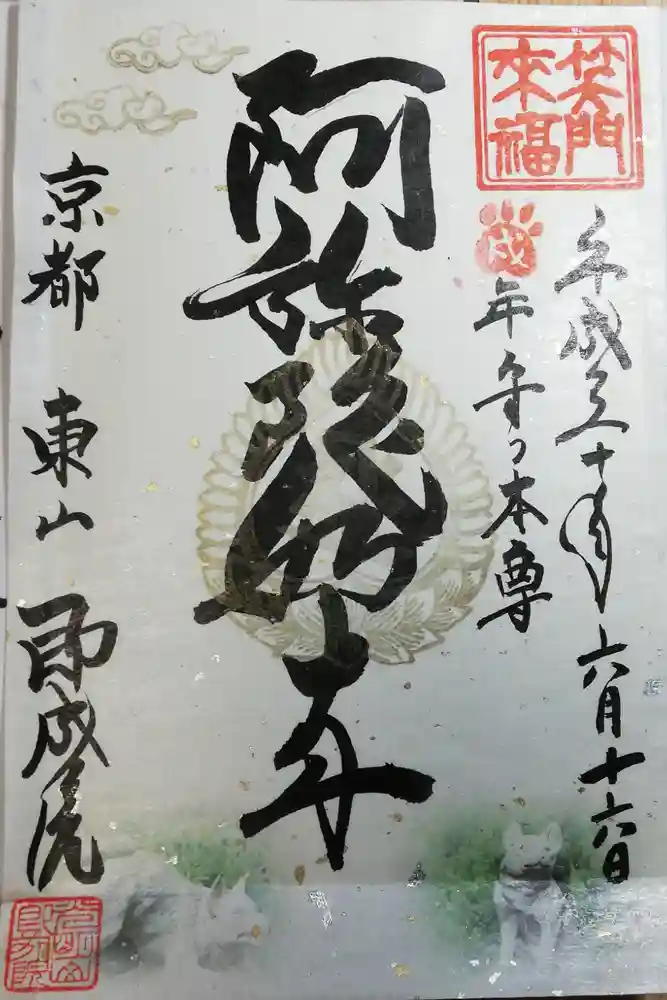 笑門
來福
平成三十年六月十六日
戌年守り本尊
阿弥陀如来
京都 東山 即成院